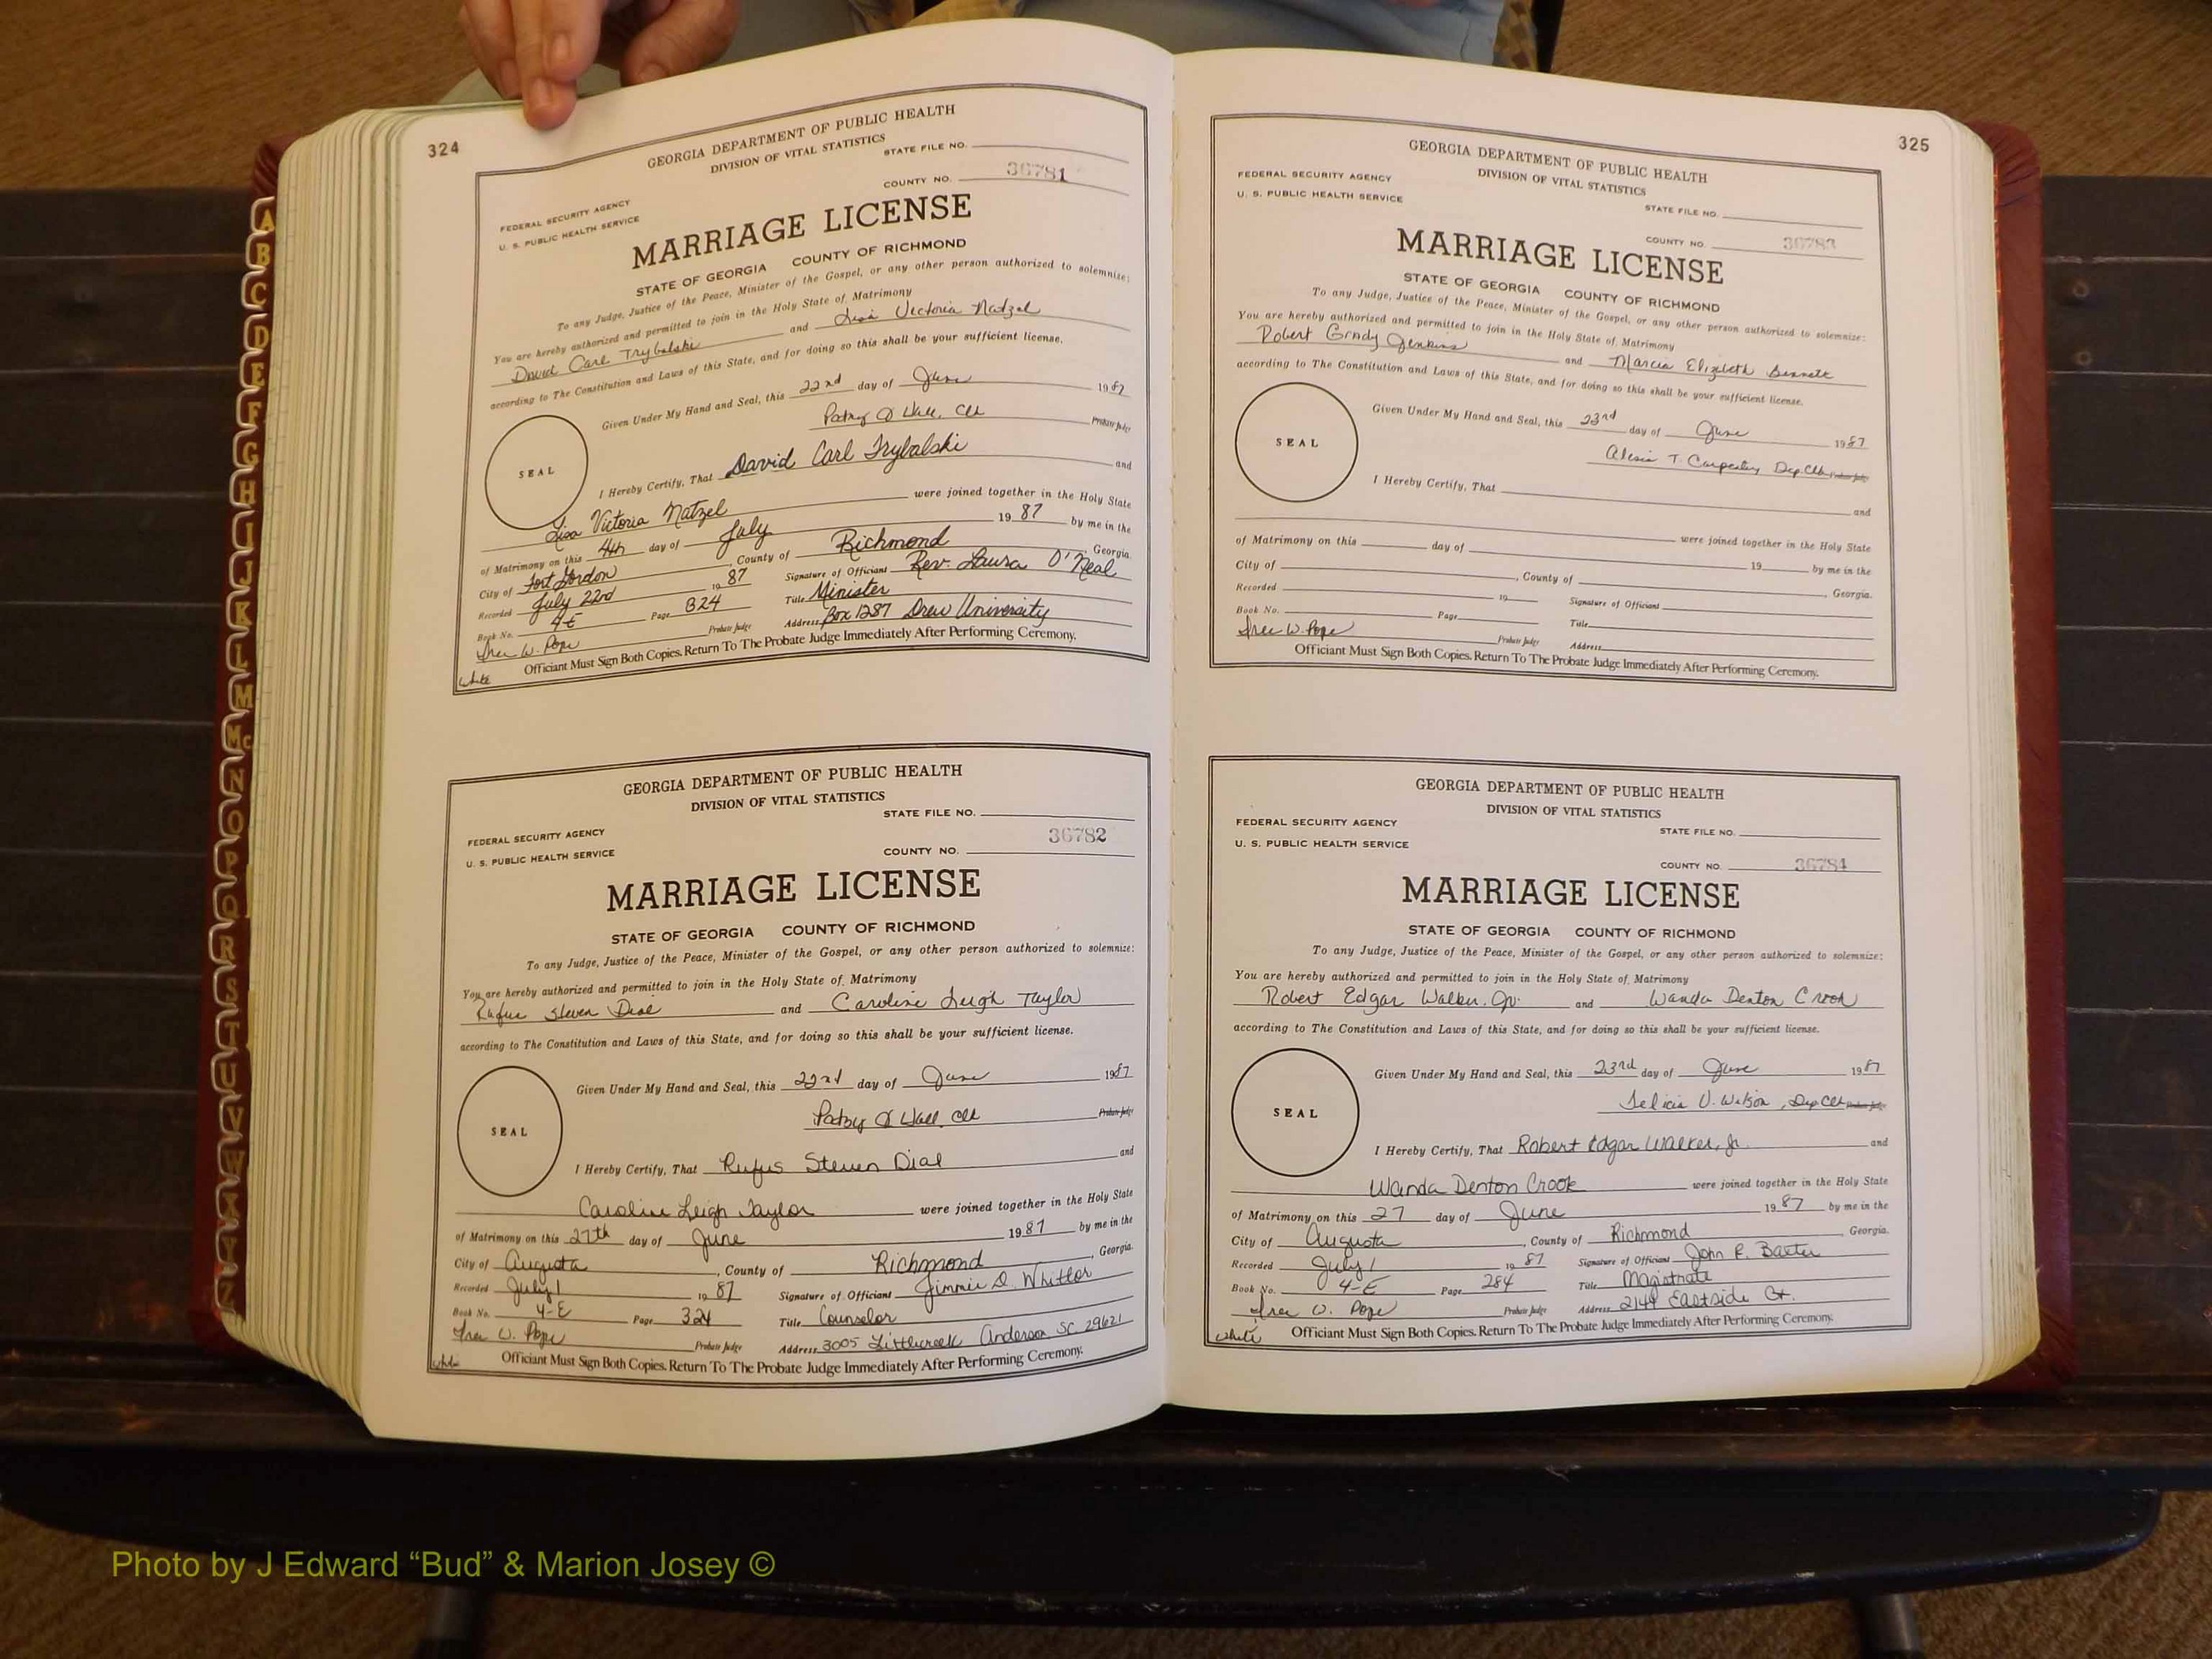 324
GEORGIA DEPARTMENT OF PUBLIC HEALTH
DIVISION OF VITAL STATISTICS
STATE FILE NO.
FEDERAL SECURITY AGENCY
U. S. PUBLIC HEALTH SERVICE
COUNTY NO. 36781
MARRIAGE LICENSE
STATE OF GEORGIA COUNTY OF RICHMOND
To any Judge, Justice of the Peace, Minister of the Gospel, or any other person authorized to solemnize:
You are hereby authorized and permitted to join in the Holy State of Matrimony
David Carl Trybalski and Lisa Victoria Natzel
according to The Constitution and Laws of this State, and for doing so this shall be your sufficient license.
Given Under My Hand and Seal, this 22nd day of June 1987
Patsy Q Wall, Clk Probate Judge
SEAL
I Hereby Certify, That David Carl Trybalski and
Lisa Victoria Natzel were joined together in the Holy State
of Matrimony on this 4th day of July 19 87 by me in the
City of Fort Gordon, County of Richmond, Georgia.
Recorded July 22nd 19 87 Signature of Officiant Rev. Laura O'Neal
Book No. 4-E Page 324 Title Minister
Tree W. Pope Probate Judge Address Box 1287 Drew University
Officiant Must Sign Both Copies. Return To The Probate Judge Immediately After Performing Ceremony.
white
GEORGIA DEPARTMENT OF PUBLIC HEALTH
DIVISION OF VITAL STATISTICS
STATE FILE NO.
FEDERAL SECURITY AGENCY
U. S. PUBLIC HEALTH SERVICE
COUNTY NO. 36782
MARRIAGE LICENSE
STATE OF GEORGIA COUNTY OF RICHMOND
To any Judge, Justice of the Peace, Minister of the Gospel, or any other person authorized to solemnize:
You are hereby authorized and permitted to join in the Holy State of Matrimony
Rufus Steven Dial and Caroline Leigh Taylor
according to The Constitution and Laws of this State, and for doing so this shall be your sufficient license.
Given Under My Hand and Seal, this 22nd day of June 1987
Patsy Q Wall, Clk Probate Judge
SEAL
I Hereby Certify, That Rufus Steven Dial and
Caroline Leigh Taylor were joined together in the Holy State
of Matrimony on this 27th day of June 1987 by me in the
City of Augusta, County of Richmond, Georgia.
Recorded July 1 19 87 Signature of Officiant Jimmie D. Whitlor
Book No. 4-E Page 324 Title Counselor
Tree W. Pope Probate Judge Address 3005 Littlecreek Anderson SC 29621
Officiant Must Sign Both Copies. Return To The Probate Judge Immediately After Performing Ceremony.
white
325
GEORGIA DEPARTMENT OF PUBLIC HEALTH
DIVISION OF VITAL STATISTICS
FEDERAL SECURITY AGENCY
U. S. PUBLIC HEALTH SERVICE
STATE FILE NO.
COUNTY NO. 36783
MARRIAGE LICENSE
STATE OF GEORGIA COUNTY OF RICHMOND
To any Judge, Justice of the Peace, Minister of the Gospel, or any other person authorized to solemnize:
You are hereby authorized and permitted to join in the Holy State of Matrimony
Robert Grady Jenkins and Marcia Elizabeth Bennett
according to The Constitution and Laws of this State, and for doing so this shall be your sufficient license.
Given Under My Hand and Seal, this 23rd day of June 1987
Alesia T. Carpenter Dep. Clk Probate Judge
SEAL
I Hereby Certify, That and
were joined together in the Holy State
of Matrimony on this day of 19 by me in the
City of , County of , Georgia.
Recorded 19 Signature of Officiant
Book No. Page Title
Tree W. Pope Probate Judge Address
Officiant Must Sign Both Copies. Return To The Probate Judge Immediately After Performing Ceremony.
GEORGIA DEPARTMENT OF PUBLIC HEALTH
DIVISION OF VITAL STATISTICS
FEDERAL SECURITY AGENCY
STATE FILE NO.
U. S. PUBLIC HEALTH SERVICE
COUNTY NO. 36784
MARRIAGE LICENSE
STATE OF GEORGIA COUNTY OF RICHMOND
To any Judge, Justice of the Peace, Minister of the Gospel, or any other person authorized to solemnize:
You are hereby authorized and permitted to join in the Holy State of Matrimony
Robert Edgar Walker, Jr. and Wanda Denton Crook
according to The Constitution and Laws of this State, and for doing so this shall be your sufficient license.
Given Under My Hand and Seal, this 23rd day of June 1987
Felicia V. Wilson, Dep Clk Probate Judge
SEAL
I Hereby Certify, That Robert Edgar Walker, Jr. and
Wanda Denton Crook were joined together in the Holy State
of Matrimony on this 27 day of June 19 87 by me in the
City of Augusta, County of Richmond, Georgia.
Recorded July 1 19 87 Signature of Officiant John R. Baxter
Book No. 4-E Page 284 Title Magistrate
Tree W. Pope Probate Judge Address 2144 Eastside Ct.
white Officiant Must Sign Both Copies. Return To The Probate Judge Immediately After Performing Ceremony.
A
B
C
D
E
F
G
H
I
J
K
L
M
Mc
N
O
P
Q
R
S
T
U
V
W
X
Y
Z
Photo by J Edward “Bud” & Marion Josey ©